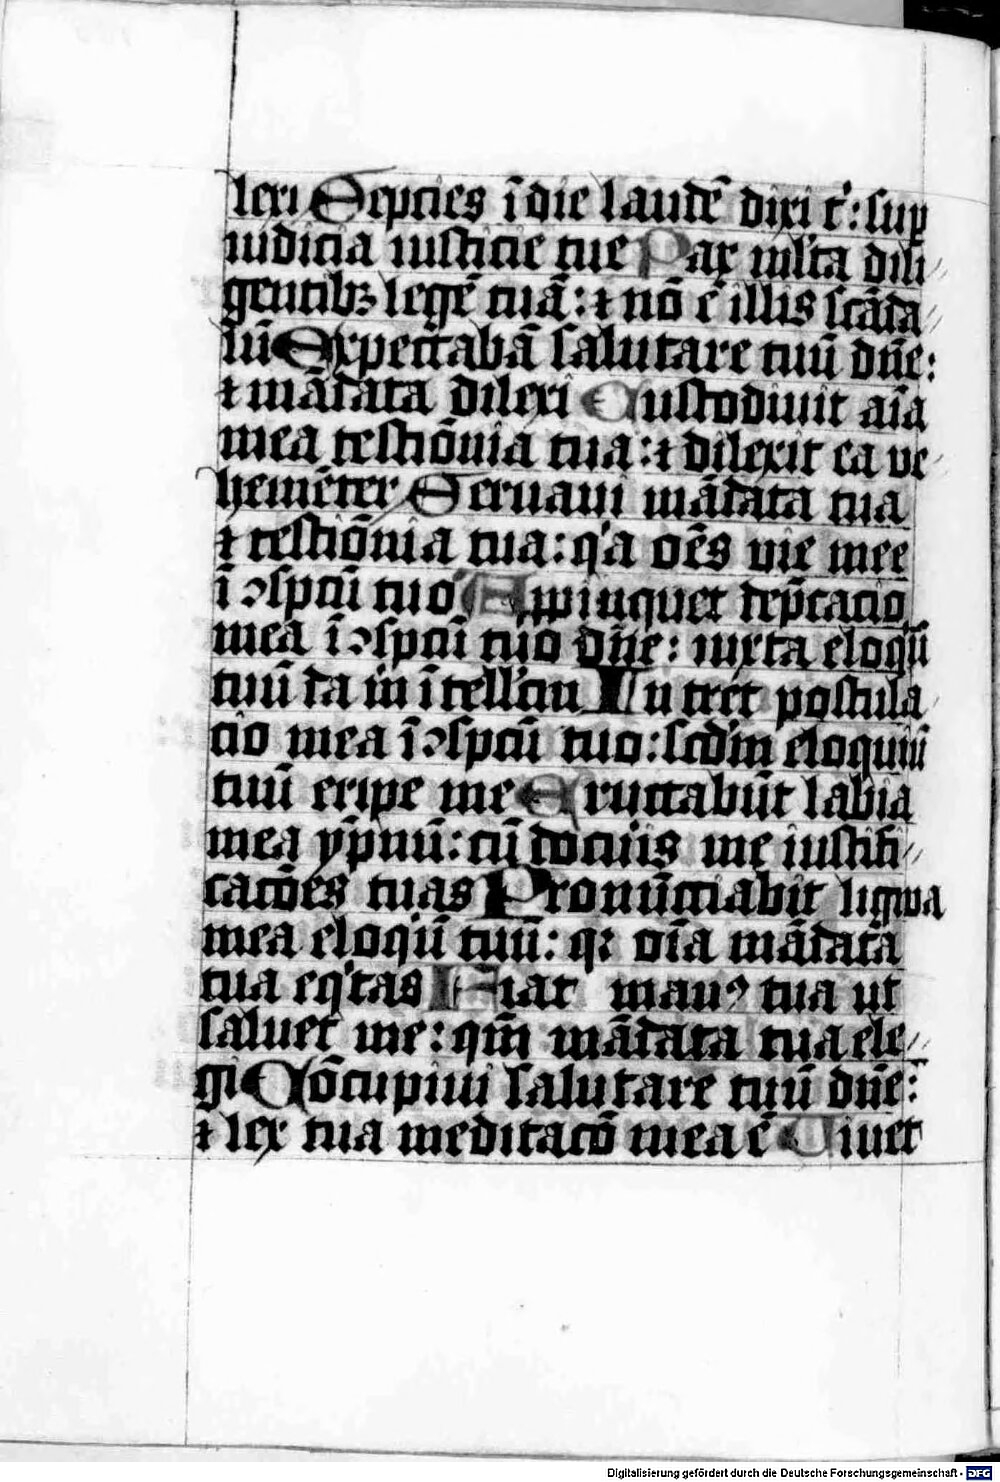 lexi Sepcies ī die laudē dixi t': sup
iudicia iusticie tue Pax ml'ta dili
gentibꝫ legē tuā: ⁊ nō ē illis scāda
lū Expectabā salutare tuū dn̄e:
⁊ mādata dilexi Custodiuit aīa
mea testiōnia tua: ⁊ dilexit ea ve
hemēter Seruaui mādata tua
⁊ testiōnia tua: q'a oēs vie mee
ī ꝯspcū tuo Appinquet dep̄cacio
mea ī ꝯspcū tuo dn̄e: iuxta eloqū
tuū da m̄ ītell'cm Intret postula
cio mea ī ꝯspcū tuo: scd'm eloquiū
tuū eripe me Eructabūt labia
mea ypnū: cū docu'is me iustifi
cacōes tuas Pronūciabit ligwa
mea eloq'ū tuū: qꝛ oīa mādata
tua eq'tas Fiat manꝰ tua ut
saluet me: qm̄ mādata tua ele
gi Cōcupiui salutare tuū dn̄e:
⁊ lex tua meditacō mea ē Uiuet
Digitalisierung gefördert durch die Deutsche Forschungsgemeinschaft - DFG